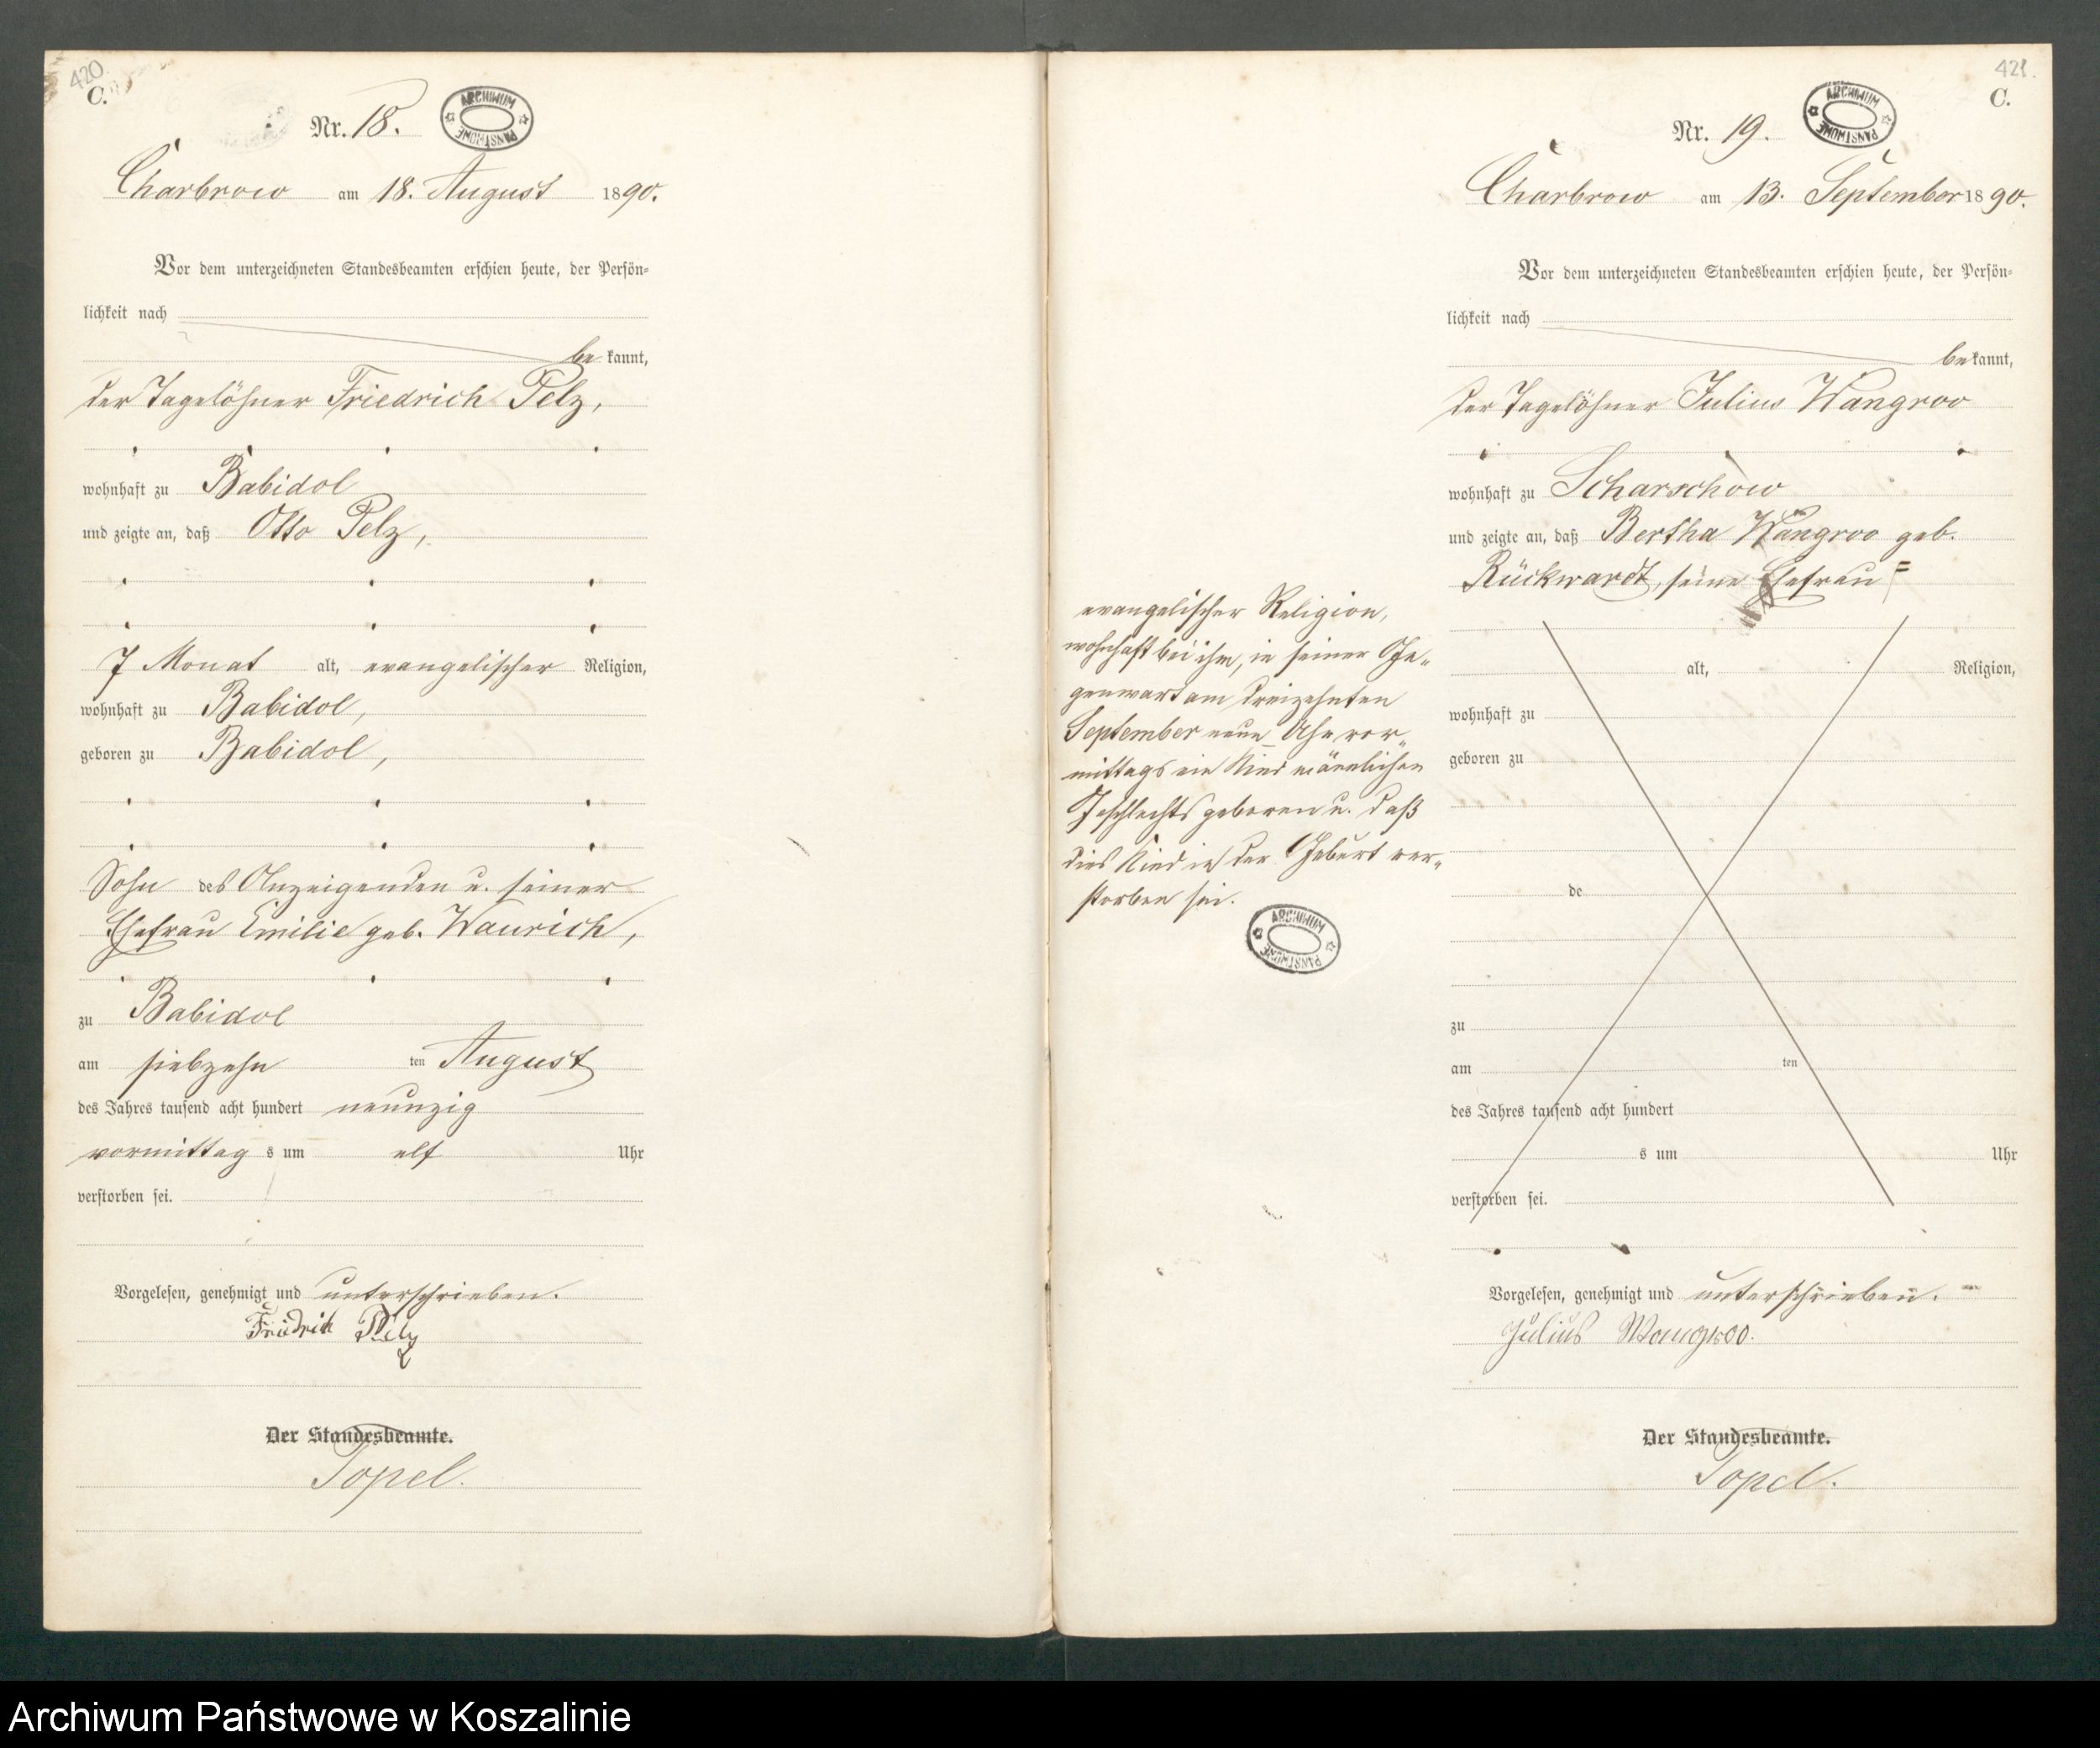 420
C.
Nr. 18.
ARCHIWUM PAŃSTWOWE
Charbrow am 18. August 1890.
Vor dem unterzeichneten Standesbeamten erschien heute, der Persön-
lichkeit nach
be kannt,
der Tagelöhner Friedrich Pelz,
wohnhaft zu Babidol
und zeigte an, daß Otto Pelz,
7 Monat alt, evangelischer Religion,
wohnhaft zu Babidol,
geboren zu Babidol,
Sohn des Anzeigenden u. seiner
Ehefrau Emilie geb. Waurich,
zu Babidol
am siebzehn ten August
des Jahres tausend acht hundert neunzig
vormittag s um elf Uhr
verstorben sei.
Vorgelesen, genehmigt und unterschrieben.
Friedrich Pelz
Der Standesbeamte.
Topel.
421.
C.
Nr. 19.
ARCHIWUM PAŃSTWOWE
Charbrow am 13. September 1890.
Vor dem unterzeichneten Standesbeamten erschien heute, der Persön-
lichkeit nach
be kannt,
der Tagelöhner Julius Wangroo
wohnhaft zu Scharschow
und zeigte an, daß Bertha Wangroo geb.
Rückwardt, seine Ehefrau =
evangelischer Religion,
wohnhaft bei ihm, in seiner Ge-
genwart am dreizehnten
September neun Uhr vor-
mittags ein Kind männlichen
Geschlechts geboren u. daß
dies Kind in der Geburt ver-
storben sei.
ARCHIWUM PAŃSTWOWE
alt, Religion,
wohnhaft zu
geboren zu
de
zu
am ten
des Jahres tausend acht hundert
s um Uhr
verstorben sei.
Vorgelesen, genehmigt und unterschrieben.
Julius Wangroo.
Der Standesbeamte.
Topel.
Archiwum Państwowe w Koszalinie